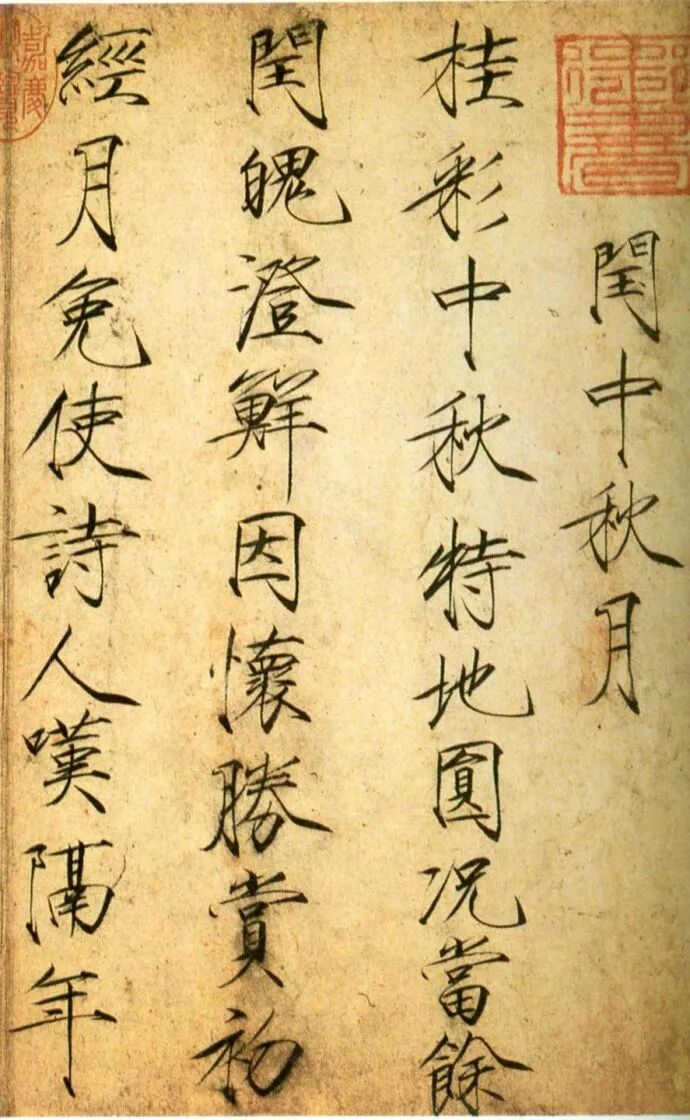 閏中秋月
桂彩中秋特地圓况當餘
閏魄澄鮮因懷勝賞初
經月免使詩人嘆隔年
嘉慶